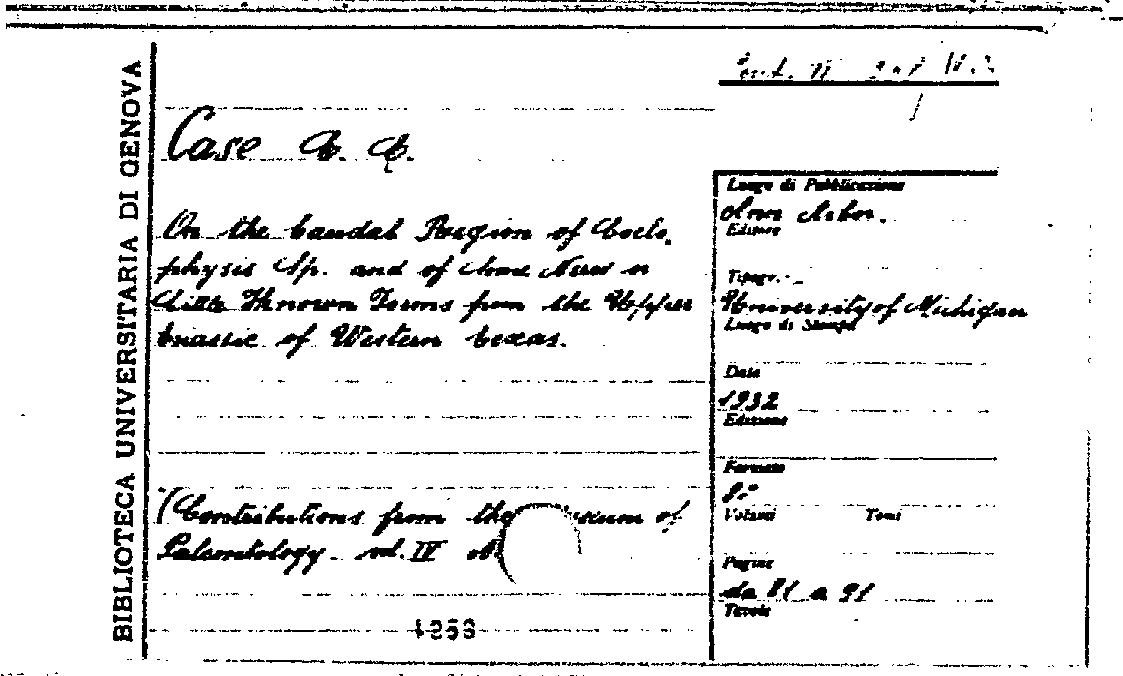 BIBLIOTECA UNIVERSITARIA DI GENOVA
Case E. C.
On the Caudal Region of Coelo
physis Sp. and of Some New or
Little Known Forms from the Upper
Triassic of Western Texas.
(Contributions from the Museum of
Paleontology vol. IV
1253
Luogo di Pubblicazione
Ann Arbor.
Editore
Tipogr.
University of Michigan
Luogo di Stampa
Data
1932
Edizione
Formato
8°
Volumi Tomi
Pagine
da 81 a 91
Tavole